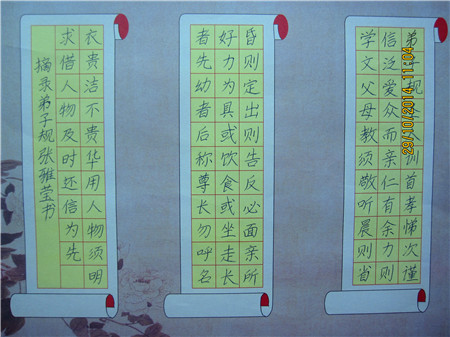 弟子规圣人训首孝悌次谨
信泛爱众而亲仁有余力则
学文父母教须敬听晨则省
昏则定出则告反必面亲所
好力为具或饮食或坐走长
者先幼者后称尊长勿呼名
衣贵洁不贵华用人物须明
求借人物及时还信为先
摘录弟子规张雅莹书
29/10/2014 11:04